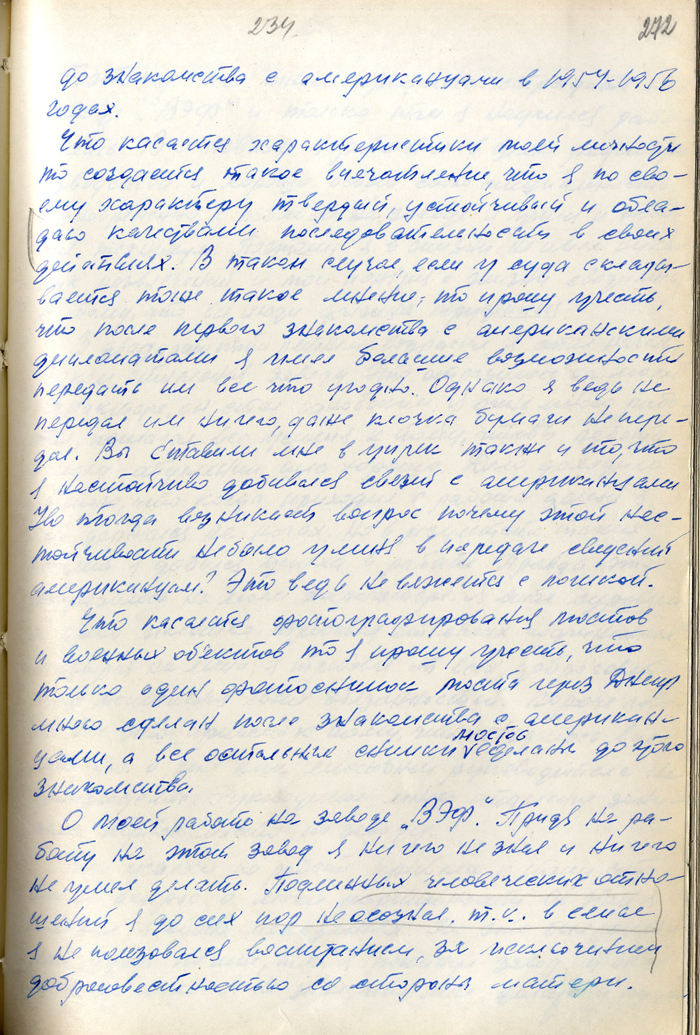 234
272
до знакомства с американцами в 1954-1956
годах.
Что касается характеристики моей личности
то создается такое впечатление, что я по сво-
ему характеру твердый, устойчивый и обла-
даю качествами последовательности в своих
действиях. В таком случае, если у суда склады-
вается тоже такое мнение, то прошу учесть,
что после первого знакомства с американскими
дипломатами я имел большие возможности
передать им все что угодно. Однако я ведь не
передал им ничего, даже клочка бумаги не пере-
дал. Вы ставили мне в упрек также и то, что
я настойчиво добивался связи с американцами
Но тогда возникает вопрос почему этой нас-
тойчивости не было у меня в передаче сведений
американцам? Это ведь не вяжется с логикой.
Что касается фотографирования мостов
и военных объектов то я прошу учесть, что
только один фотоснимок моста через Днепр
мною сделан после знакомства с американ-
цами, а все остальные снимки мостов сделаны до этого
знакомства.
О моей работе на заводе „ВЭФ". Придя на ра-
боту на этот завод я ничего не знал и ничего
не умел делать. Подлинных человеческих отно-
шений я до сих пор не осознал, т.к. в семье
я не пользовался воспитанием, за исключением
добросовестностью со стороны матери.